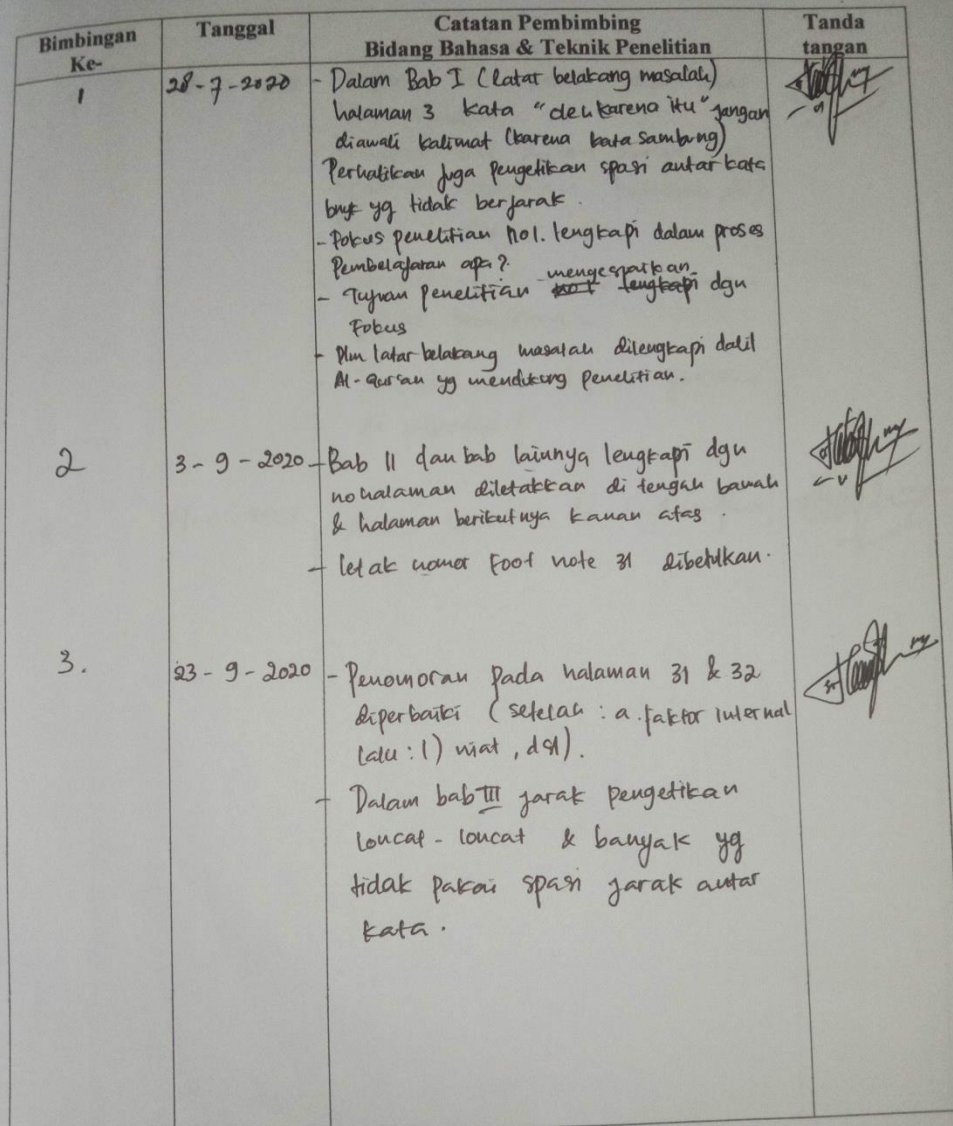 Bimbingan Ke-
Tanggal
Catatan Pembimbing
Bidang Bahasa & Teknik Penelitian
Tanda tangan
1
28-7-2020
- Dalam Bab I (latar belakang masalah)
halaman 3 kata "oleh karena itu" jangan
diawali kalimat (karena kata sambung)
Perhatikan juga pengetikan spasi antar kata
bnyk yg tidak berjarak.
- Fokus penelitian no 1. lengkapi dalam proses
Pembelajaran apa?
- Tujuan Penelitian mengesuaikan dgn
Fokus
- Dlm latar belakang masalah dilengkapi dalil
Al-Qur'an yg mendukung penelitian.
2
3-9-2020
- Bab II dan bab lainnya lengkapi dgn
no halaman diletakkan di tengah bawah
& halaman berikutnya kanan atas.
- letak nomor Foot note 31 dibetulkan.
3.
23-9-2020
- Penomoran pada halaman 31 & 32
diperbaiki (setelah : a. faktor internal
lalu : 1) niat, dst).
- Dalam bab III jarak pengetikan
loncat-loncat & banyak yg
tidak pakai spasi jarak antar
kata.